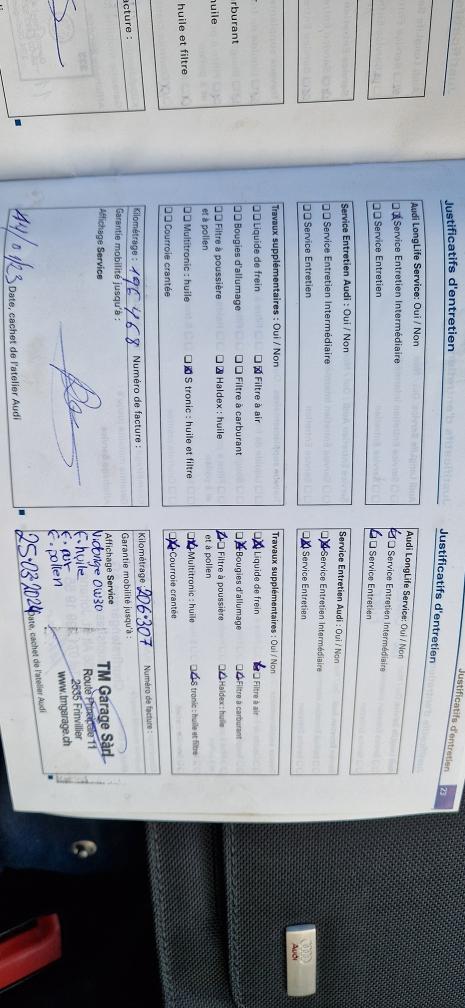 Justificatifs d'entretien
23
Justificatifs d'entretien
Audi LongLife Service: Oui / Non
Service Entretien Intermédiaire
Service Entretien
Service Entretien Audi : Oui / Non
Service Entretien Intermédiaire
Service Entretien
Travaux supplémentaires : Oui / Non
Liquide de frein
Filtre à air
Bougies d'allumage
Filtre à carburant
Filtre à poussière et à pollen
Haldex : huile
Multitronic : huile
S tronic : huile et filtre
Courroie crantée
Kilométrage : 196 468 Numéro de facture :
Garantie mobilité jusqu'à :
Affichage Service
Date, cachet de l'atelier Audi
Justificatifs d'entretien
Audi LongLife Service: Oui / Non
Service Entretien Intermédiaire
Service Entretien
Service Entretien Audi : Oui / Non
Service Entretien Intermédiaire
Service Entretien
Travaux supplémentaires : Oui / Non
Liquide de frein
Filtre à air
Bougies d'allumage
Filtre à carburant
Filtre à poussière et à pollen
Haldex : huile
Multitronic : huile
S tronic : huile et filtre
Courroie crantée
Kilométrage 206307 Numéro de facture :
Garantie mobilité jusqu'à :
Affichage Service
0W30
F. huile
F. air
F. pollen
TM Garage Sàrl
Route Principale 11
2535 Frinvillier
www.tmgarage.ch
25.03.2024 Date, cachet de l'atelier Audi
rburant
huile
huile et filtre
acture :
Audi